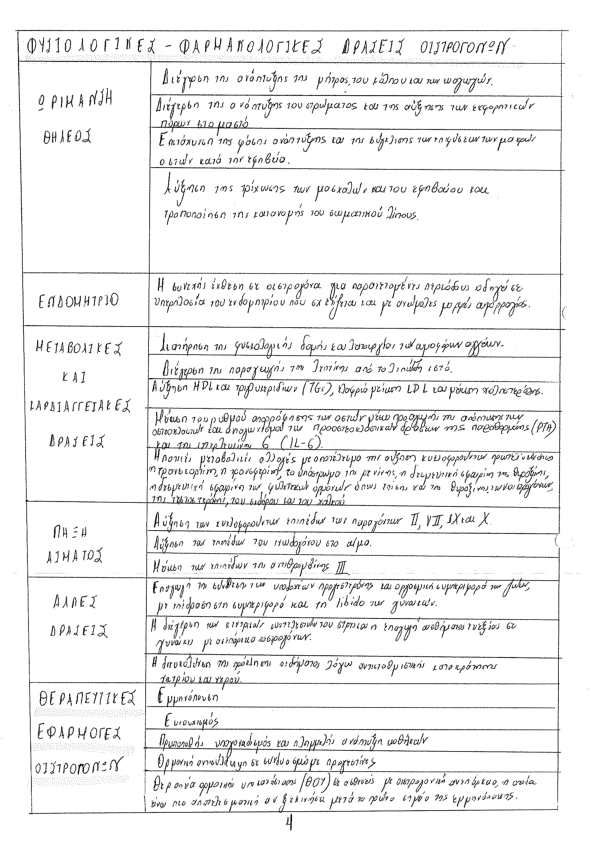 ΦΥΣΙΟΛΟΓΙΚΕΣ - ΦΑΡΜΑΚΟΛΟΓΙΚΕΣ ΔΡΑΣΕΙΣ ΟΙΣΤΡΟΓΟΝΩΝ
ΩΡΙΜΑΝΣΗ
ΘΗΛΕΟΣ
Διέγερση της ανάπτυξης της μήτρας, του κόλπου και των ωαγωγών.
Διέγερση της ανάπτυξης του στρώματος και της αύξησης των εκφορητικών
πόρων στο μαστό
Επιτάχυνση της φάσης ανάπτυξης και της σύγκλεισης των επιφύσεων των μακρών
οστών κατά την εφηβεία.
Αύξηση της τρίχωσης των μασχαλών και του εφηβαίου και
τροποποίηση της κατανομής του σωματικού λίπους.
ΕΝΔΟΜΗΤΡΙΟ
Η συνεχής έκθεση σε οιστρογόνα για παρατεταμένες περιόδους οδηγό σε
υπερπλασία του ενδομητρίου που σχετίζεται και με ανώμαλες μορφές αιμορραγίας.
ΜΕΤΑΒΟΛΙΚΕΣ
ΚΑΙ
ΚΑΡΔΙΑΓΓΕΙΑΚΕΣ
ΔΡΑΣΕΙΣ
Διατήρηση της φυσιολογικής δομής και λειτουργίας των αιμοφόρων αγγείων.
Διέγερση της παραγωγής της λεπτίνης από το λιπώδη ιστό.
Αύξηση HDL και τριγλυκεριδίων (TGs), ελαφριά μείωση LDL και μείωση χοληστερόλης.
Μείωση του ρυθμού απορρόφησης των οστών μέσω προαγωγής της απόπτωσης των
οστεοκλαστών και ανταγωνισμού της προοστεοκλαστικών δράσεων της παραθορμόνης (PTH)
και της ιντερλευκίνης 6 (IL-6).
Ηπατικές μεταβολικές αλλαγές με αποτέλεσμα την αύξηση κυκλοφορούντων πρωτεϊνών όπως
η τρανσκορτίνη, η τρανσφερίνη, το υπόστρωμα της ρενίνης, η δεσμευτική σφαιρίνη της θυροξίνης,
η δεσμευτική σφαιρίνη των φυλετικών ορμονών όπως επίσης και της θυροξίνης, των οιστρογόνων,
της τεστοστερόνης, του σιδήρου και του χαλκού
ΠΗΞΗ
ΑΙΜΑΤΟΣ
Αύξηση των κυκλοφορούντων επιπέδων των παραγόντων II, VII, IX και X.
Αύξηση των επιπέδων του ινωδογόνου στο αίμα.
Μείωση των επιπέδων της αντιθρομβίνης III
ΑΛΛΕΣ
ΔΡΑΣΕΙΣ
Επαγωγή της σύνθεσης των υποδοχέων προγεστερόνης και οργασμική συμπεριφορά των ζώων,
με επίδραση στη συμπεριφορά και τη libido των γυναικών.
Η διέγερση των κεντρικών συντελεστών του στρες και η επαγωγή αισθήματος ευεξίας σε
γυναίκες με ανεπάρκεια οιστρογόνων.
Η διευκόλυνση της πρόκλησης οιδήματος λόγω αντισταθμιστικής κατακράτησης
νατρίου και νερού.
ΘΕΡΑΠΕΥΤΙΚΕΣ
ΕΦΑΡΜΟΓΕΣ
ΟΙΣΤΡΟΓΟΝΩΝ
Εμμηνόπαυση
Ευνουχισμός
Πρωτοπαθής υπογοναδισμός και πλημμελής ανάπτυξη ωοθηκών
Ορμονική αντισύλληψη σε συνδυασμό με προγεστίνες
Θεραπεία ορμονικής υποκατάστασης (ΘΟΥ) σε ασθενείς με οιστρογονική ανεπάρκεια, η οποία
είναι πιο αποτελεσματική αν ξεκινήσει μετά το πρώτο σημάδι της εμμηνόπαυσης.
4